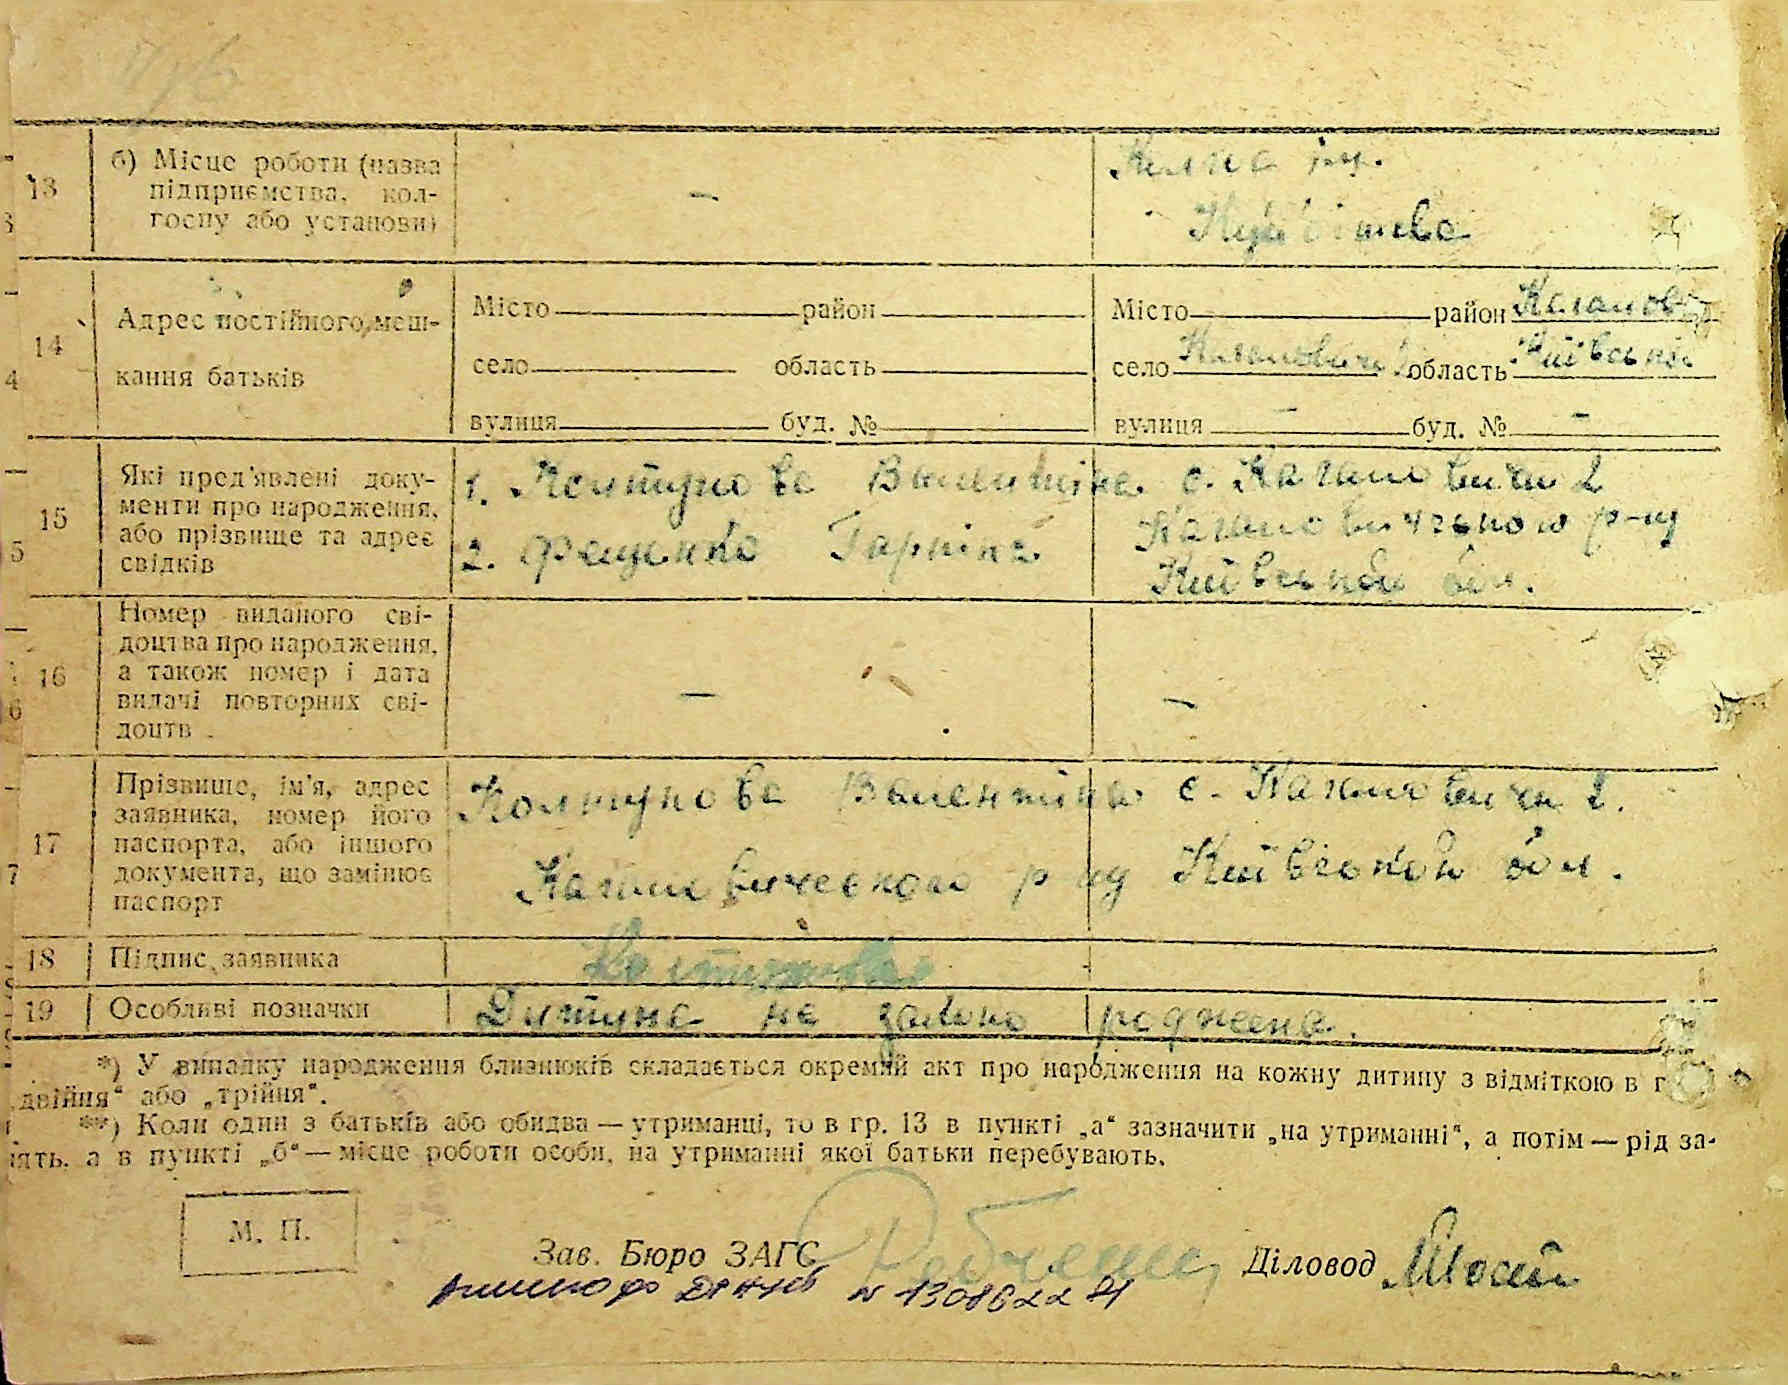 13
б) Місце роботи (назва
підприємства, кол-
госпу або установи)
—
14
Адрес постійного меш-
кання батьків
Місто район
село область
вулиця буд. №
Місто район Каганов
село Кагановичи область Київська
вулиця — буд. № —
15
Які пред'явлені доку-
менти про народження,
або прізвище та адрес
свідків
1. Колтунова Валентіна с. Кагановичи 2
Кагановичського р-ну
2. Фещенко Гарпіна
Київської обл.
16
Номер виданого сві-
доцтва про народження,
а також номер і дата
видачі повторних сві-
доцтв
— —
17
Прізвище, ім'я, адрес
заявника, номер його
паспорта, або іншого
документа, що замінює
паспорт
Колтунова Валентіна с. Кагановичи 2.
Кагановичського р-ну Київської обл.
18 Підпис заявника
Колтунова
19 Особливі позначки
Дитина не роджена.
*) У випадку народження близнюків складається окремий акт про народження на кожну дитину з відміткою в г
двійня“ або „трійня“.
**) Коли один з батьків або обидва — утриманці, то в гр. 13 в пункті „а“ зазначити „на утриманні“, а потім — рід за-
іять, а в пункті „б“ — місце роботи особи, на утриманні якої батьки перебувають.
М. П.
Зав. Бюро ЗАГС Діловод
№ 1308622